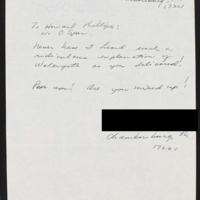 17201
To Howard Phillips:
Never have I heard such a
ridiculous explanation of
Watergate as you delivered!
Poor man! Are you mixed up!
Chambersburg, Pa
17201